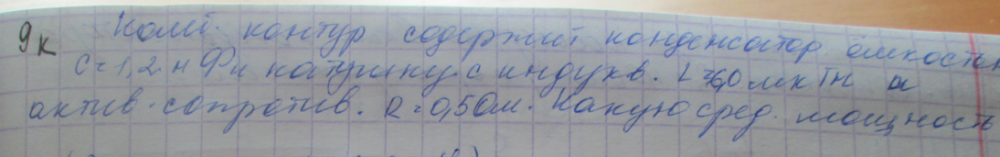 9к Колеб. контур содержит конденсатор ёмкостью
С = 1,2 нФ и катушку с индукв. L = 6,0 мкГн и
актив. сопротив. R = 0,50 Ом. Какую сред. мощность